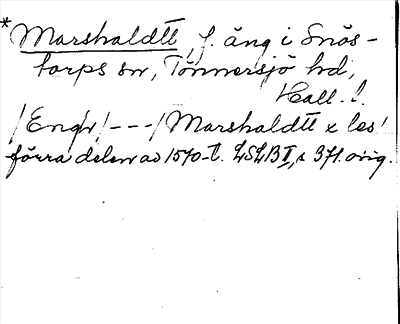 * Marshaldtt, f. äng i Snös-
torps sn, Tönnersjö hd,
Hall. l.
/Engir/ --- / Marshaldtt x les!
förra delen av 1570-t. LSLB II, s 371. orig.